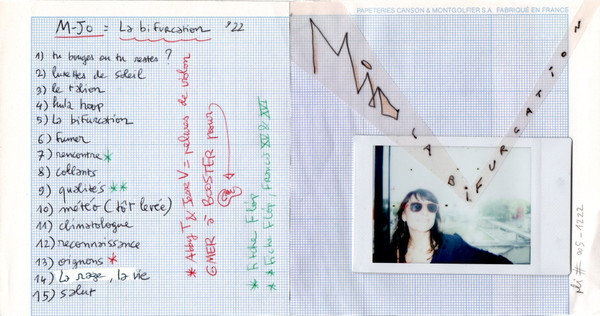 M-Jo = La bifurcation '22
1) tu bouges ou tu restes ?
2) lunettes de soleil
3) le talion
4) hula hoop
5) La bifurcation
6) fumer
7) rencontre *
8) collants
9) qualités **
10) météo (tôt levée)
11) climatologue
12) reconnaissance
13) oignons *
14) La rage, la vie
15) salut
* Abby T & Jesse V = pelures de violon
GMER à BOOSTER pour
* Fitche Flöp
* * Fiche Flöp, Francis XV & XVI
PAPETERIES CANSON & MONTGOLFIER S.A. FABRIQUÉ EN FRANCE
LA BIFURCATION